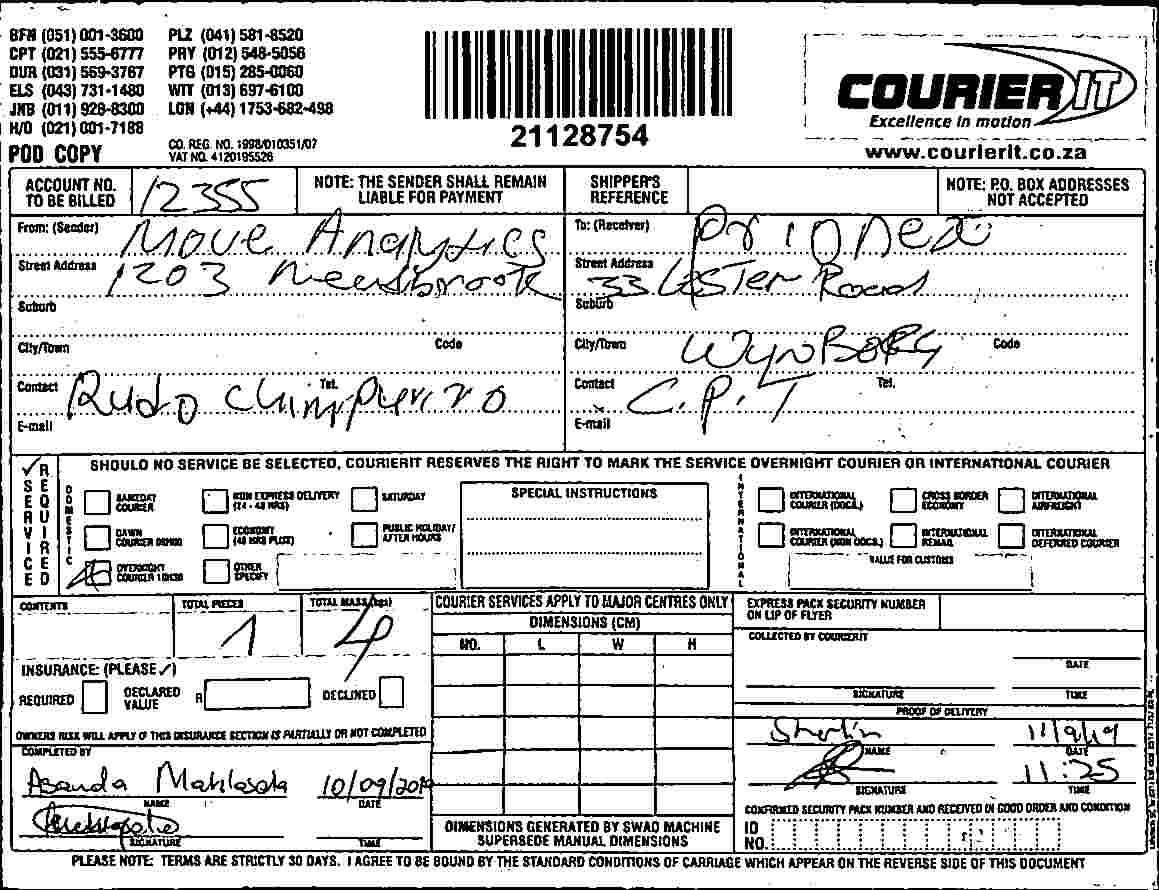 BFN (051) 001-3600 PLZ (041) 581-8520
CPT (021) 555-6777 PRY (012) 548-5056
DUR (031) 569-3767 PTG (015) 285-0060
ELS (043) 731-1480 WIT (013) 697-6100
JNB (011) 928-8300 LGN (+44) 1753-682-498
H/O (021) 001-7188
POD COPY
CO. REG. NO. 1998/010351/07
VAT NO. 4120195526
21128754
COURIER IT
Excellence in motion
www.courierit.co.za
ACCOUNT NO. TO BE BILLED 12355
NOTE: THE SENDER SHALL REMAIN LIABLE FOR PAYMENT
SHIPPER'S REFERENCE
NOTE: P.O. BOX ADDRESSES NOT ACCEPTED
From: (Sender) Move Analytics
Street Address 1203
Suburb
City/Town Code
Contact Rudo Tel.
E-mail
To: (Receiver) Prionex
Street Address 33 Lester Road
Suburb
City/Town Wynberg Code
Contact C.P.T Tel.
E-mail
✓ SERVICE REQUIRED
SHOULD NO SERVICE BE SELECTED, COURIERIT RESERVES THE RIGHT TO MARK THE SERVICE OVERNIGHT COURIER OR INTERNATIONAL COURIER
DOMESTIC
SAMEDAY COURIER
DAWN COURIER
OVERNIGHT COURIER 10H30
NON EXPRESS DELIVERY (24 - 48 HRS)
ECONOMY (48 HRS PLUS)
OTHER SPECIFY
SATURDAY
PUBLIC HOLIDAY/ AFTER HOURS
SPECIAL INSTRUCTIONS
INTERNATIONAL
INTERNATIONAL COURIER (DOCS.)
CROSS BORDER ECONOMY
INTERNATIONAL AIRFREIGHT
INTERNATIONAL COURIER (NON DOCS.)
INTERNATIONAL REMAIL
INTERNATIONAL DEFERRED COURIER
VALUE FOR CUSTOMS
CONTENTS
TOTAL PIECES 1
TOTAL MASS (kgs) 4
INSURANCE: (PLEASE ✓)
REQUIRED DECLARED VALUE R DECLINED
OWNERS RISK WILL APPLY IF THIS INSURANCE SECTION IS PARTIALLY OR NOT COMPLETED
COMPLETED BY
Asanda 10/09/2019
NAME DATE
SIGNATURE TIME
COURIER SERVICES APPLY TO MAJOR CENTRES ONLY
DIMENSIONS (CM)
NO. L W H
DIMENSIONS GENERATED BY SWAQ MACHINE SUPERSEDE MANUAL DIMENSIONS
EXPRESS PACK SECURITY NUMBER ON LIP OF FLYER
COLLECTED BY COURIERIT
DATE
SIGNATURE TIME
PROOF OF DELIVERY
11/9/19
NAME DATE
11:25
SIGNATURE TIME
CONFIRMED SECURITY PACK NUMBER AND RECEIVED IN GOOD ORDER AND CONDITION
ID NO.
PLEASE NOTE: TERMS ARE STRICTLY 30 DAYS. I AGREE TO BE BOUND BY THE STANDARD CONDITIONS OF CARRIAGE WHICH APPEAR ON THE REVERSE SIDE OF THIS DOCUMENT